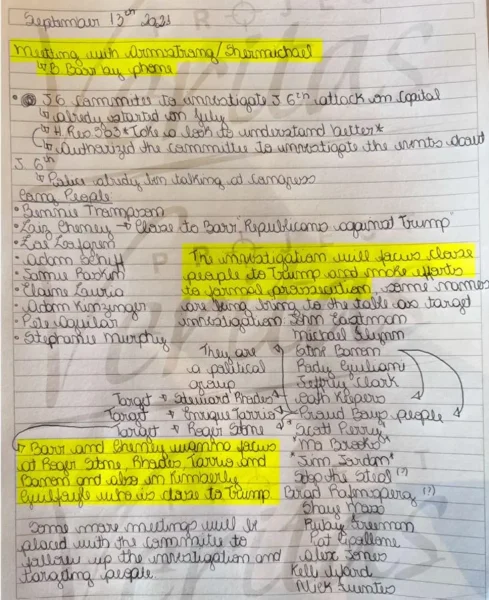 September 13th 2021
Meeting with Armstrong/Shermichael
↳ B. Barr by phone
• J6 Committee to investigate J 6th attack on Capitol
↳ already started on July
↳ H. Res 503 *Take a look to understand better*
↳ Authorized the committee to investigate the events about
J. 6th
↳ Police already been talking at Congress
Cong People
• Bennie Thompson
• Laiz Cheney → Close to Barr "Republicans against Trump"
• Zoe Lofgren
• Adam Schiff
• Jamie Raskin
• Elaine Luria
• Adam Kinzinger
• Pete Aguilar
• Stephanie Murphy
The investigation will focus close
people to Trump and make efforts
to formal prosecution, some names
are being bring to the table as target
investigation: John Eastman
Michael Flynn
Steve Bannon
Rudy Giuliani
Jeffrey Clark
Oath Keepers
Proud Boys people
They are
a political
group
Target → Steward Rhodes
Target → Enrique Tarrio
Target → Roger Stone
"Scott Perry"
"Mo Brooks"
"Jim Jordan"
Stop the Steal (?)
Brad Rafensperg (?)
Shaye Moss
Ruby Freeman
Pat Cipollone
Alex Jones
Kelli Ward
Nick Fuentes
→ Barr and Cheney focus
at Roger Stone, Rhodes, Tarrio and
Bannon and also in Kimberly
Guilfoyle who is close to Trump
Some more meetings will be
placed with the committe to
follow up the investigation and
targeting people.
Veritas
PROJECT
Veritas
PROJECT
Veritas